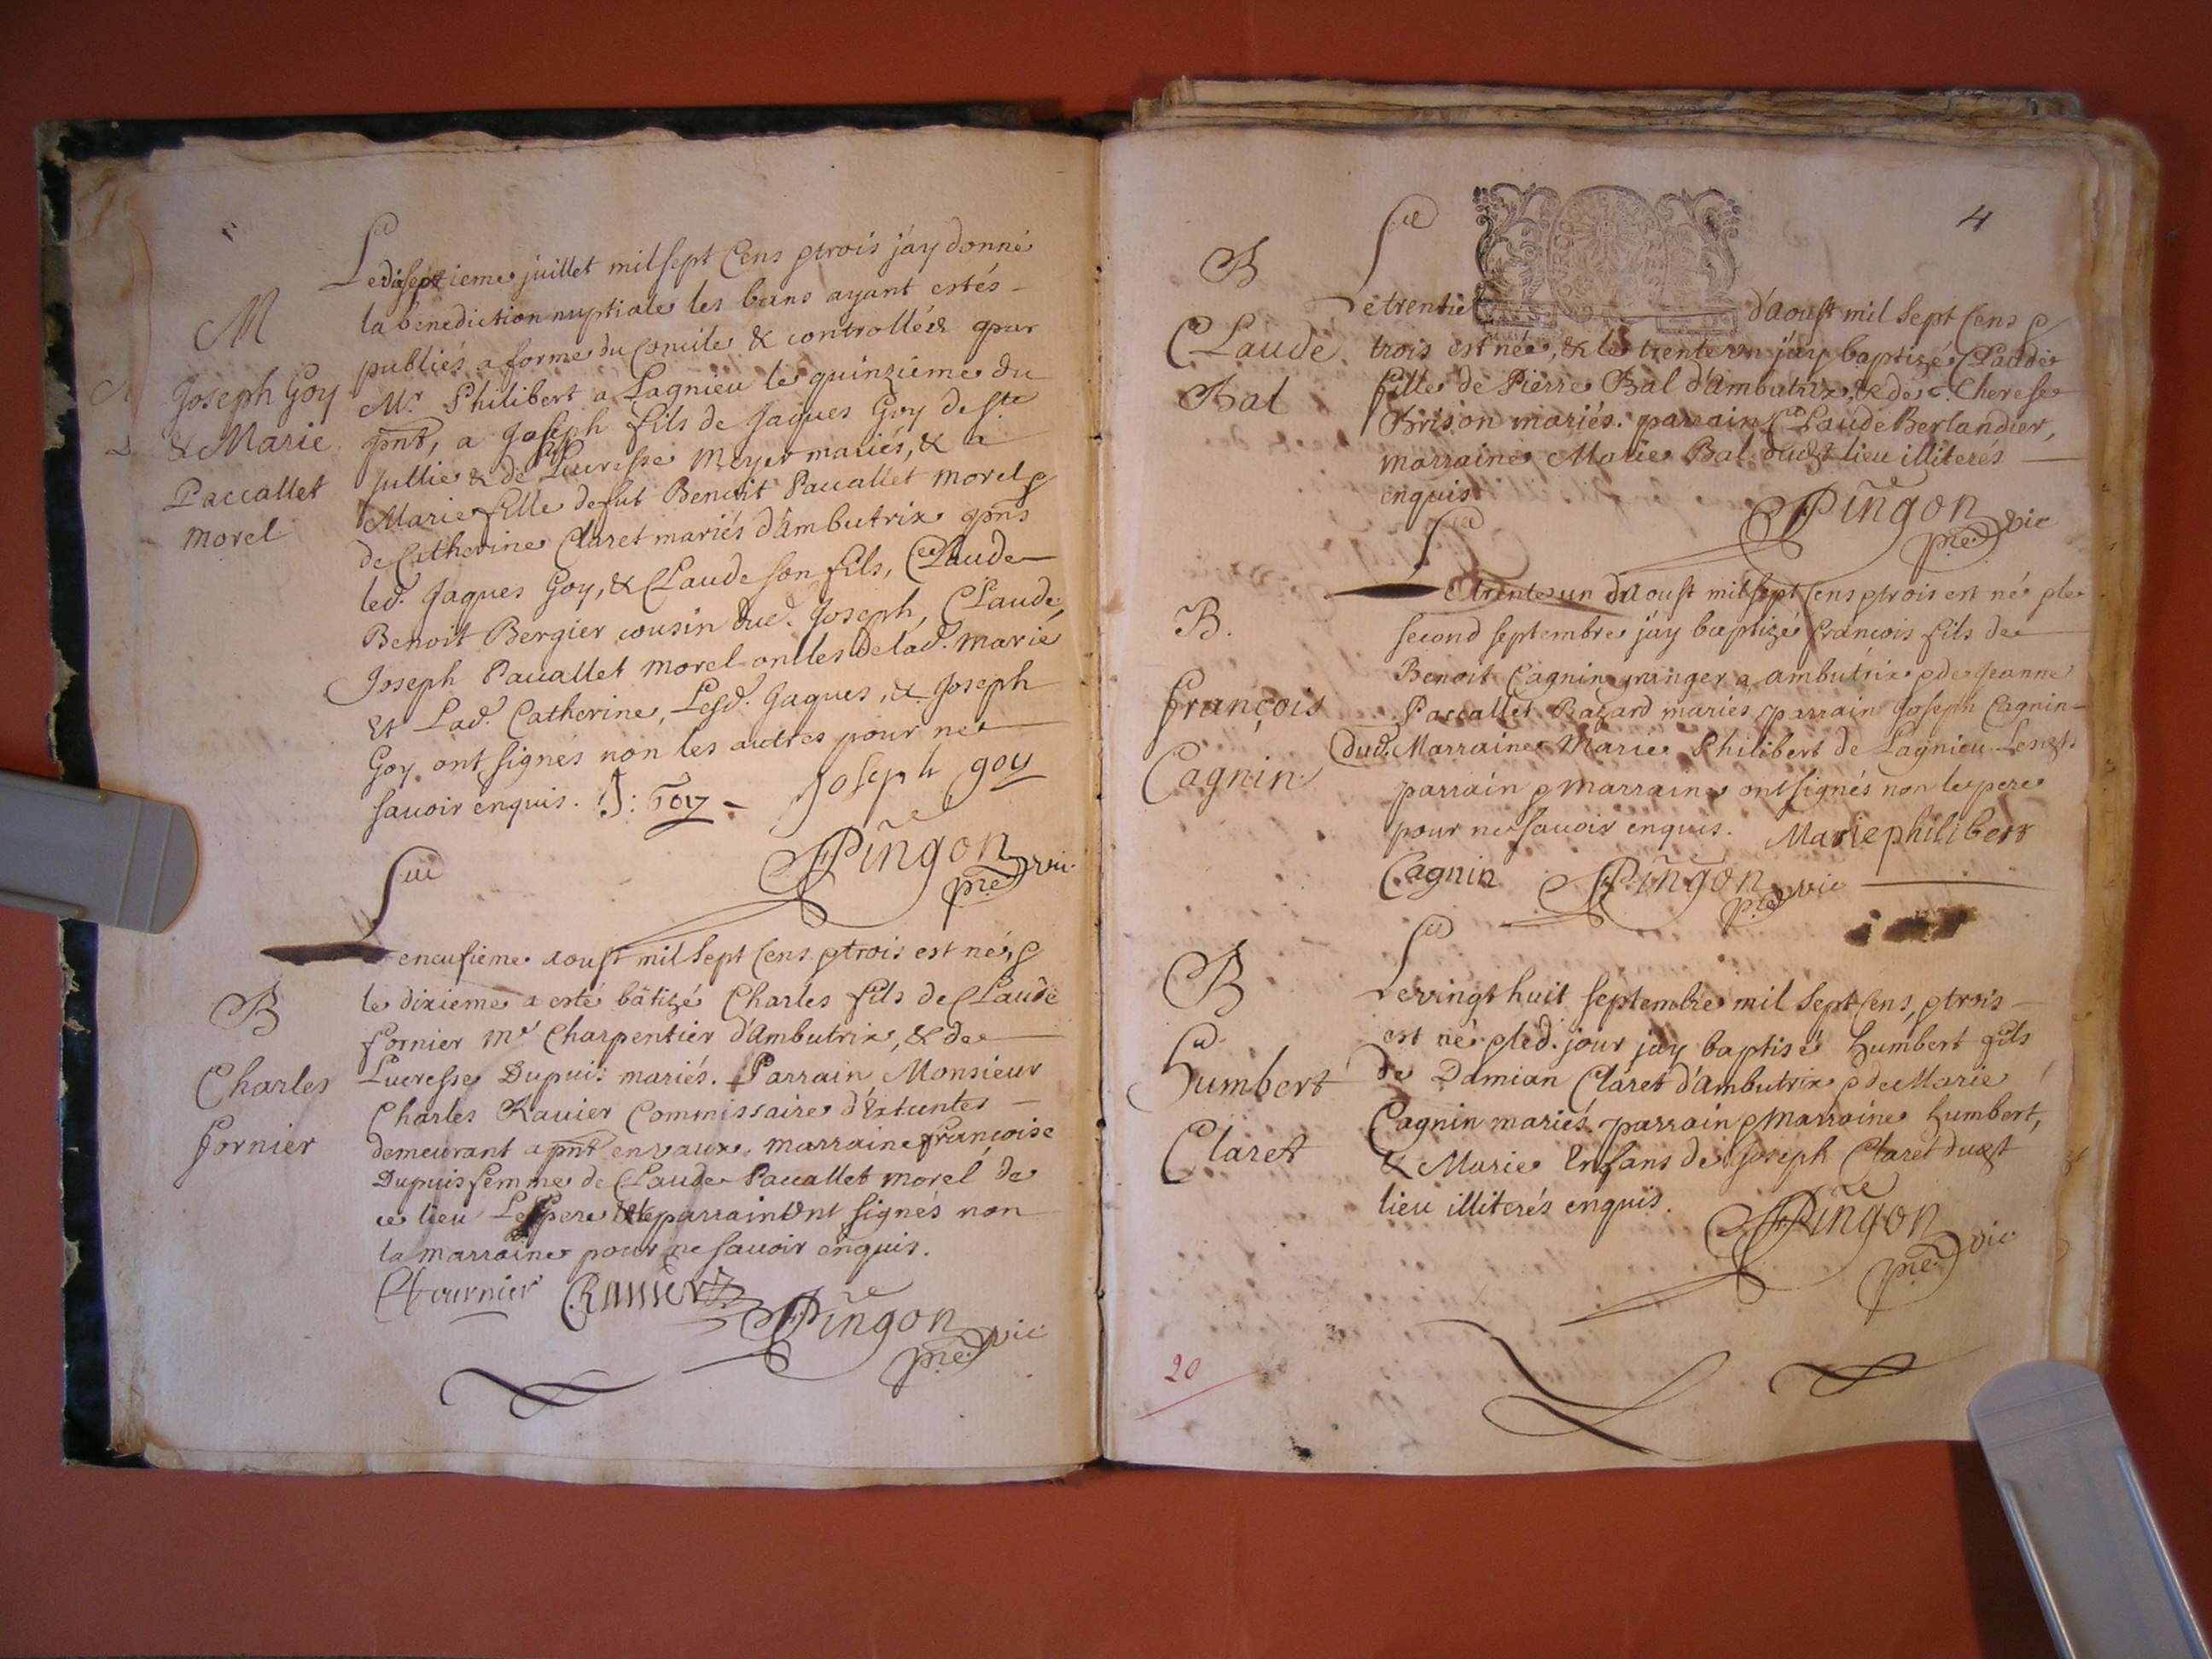 M
Joseph Goy
& Marie
Paccallet
morel
Le dixseptieme juillet mil sept Cens & trois j'ay donné
la benediction nuptiale les bans ayant estés
publiés a forme du Concile & controllées par
Mr. Philibert a Lagnieu le quinzieme du
pnt, a Joseph fils de Jaques Goy de Ste
Jullie & de Lucresse Meyer mariés, & a
Marie fille de fut Benoit Paccallet morel &
de Catherine Claret mariés d'Ambutrix pns
led. Jaques Goy, & Claude son fils, Claude
Benoit Bergier cousin dud. Joseph, Claude,
Joseph Paccallet morel oncles de lad. Marie
Et Lad. Catherine, Lesd. Jaques, & Joseph
Goy ont signés non les autres pour ne
sauoir enquis. J: Goy - Joseph goy
Pingon
pre vic
B
Charles
fornier
Le neufieme aoust mil sept Cens & trois est né, &
le dixieme a esté bâtizé Charles fils de Claude
fornier Me Charpentier d'Ambutrix, & de
Lucresse Dupuis mariés. Parrain Monsieur
Charles Rauier Commissaire d'Extentes
demeurant a pnt en vaux. marraine françoise
Dupuis femme de Claude Paccallet morel de
ce lieu Le pere & le parrain ont signés non
la marraine pour ne sauoir enquis.
C fournier C. Rauier
Pingon
pre vic
4
B
Claude
Bal
Le trentie d'aoust mil sept Cens &
trois est née, & le trente un j'ay baptizé Claude
fille de Pierre Bal d'Ambutrix, & de Therese
Brison mariés. parrain Claude Berlandier,
marraine Marie Bal dudt lieu illiterés
enquis
Pingon
pre vic
B.
françois
Cagnin
Le trente un d'Aoust mil sept Cens & trois est né & le
second septembre j'ay baptizé françois fils de
Benoit Cagnin granger a ambutrix & de Jeanne
Paccallet Bazard mariés, parrain Joseph Cagnin
dud. Marraine Marie Philibert de Lagnieu Lesdts
parrain & marraine ont signés non le pere
pour ne sauoir enquis. Marie philibert
Cagnin Pingon
pre vic
B
Humbert
Claret
Le vingt huit septembre mil sept Cens, & trois
est né & led. jour j'ay baptisé Humbert fils
de Damian Claret d'Ambutrix & de Marie
Cagnin mariés. parrain & Marraine Humbert,
& Marie Enfans de Joseph Claret dudt
lieu illiterés enquis.
Pingon
pre vic
20